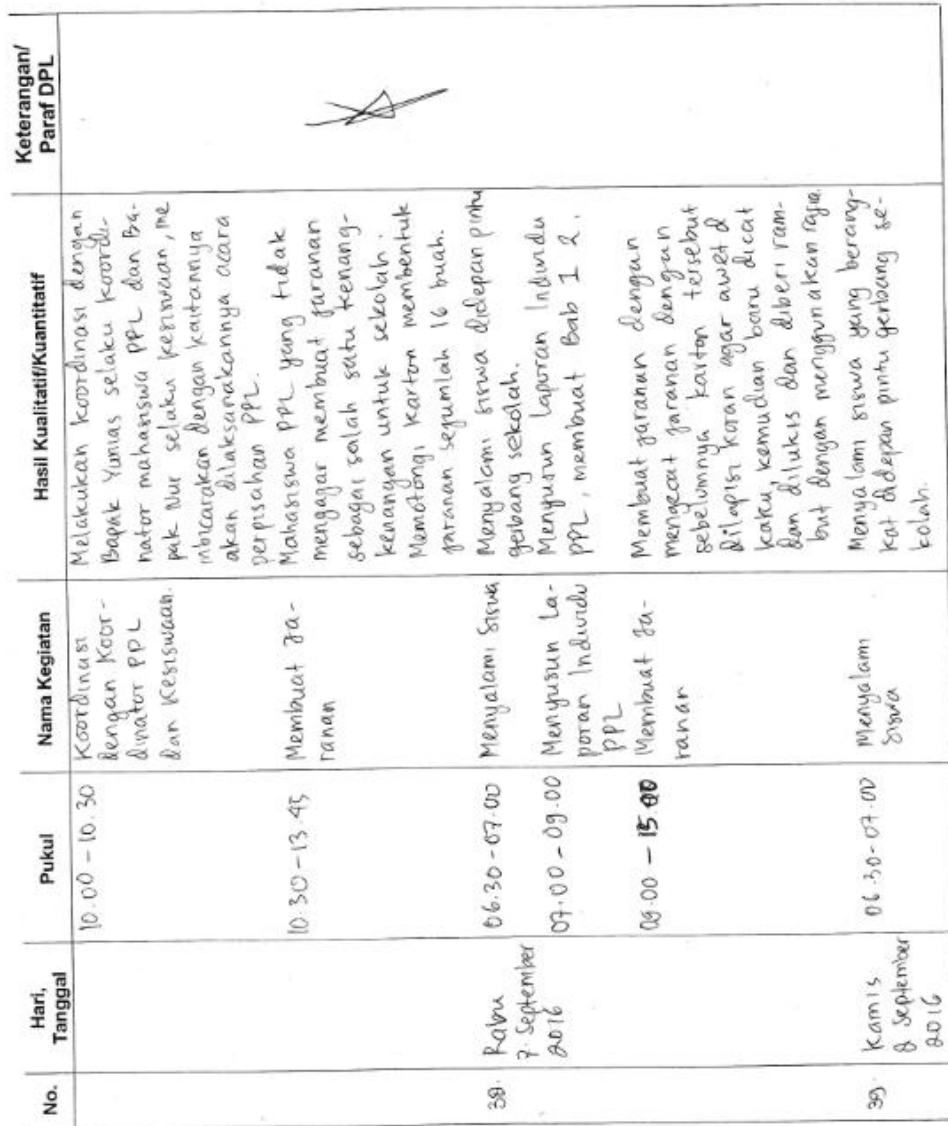 No.
Hari,
Tanggal
Pukul
Nama Kegiatan
Hasil Kualitatif/Kuantitatif
Keterangan/
Paraf DPL
10.00 - 10.30
Koordinasi
dengan Koor-
dinator PPL
dan Kesiswaan.
Melakukan koordinasi dengan
Bapak Yunias selaku koordi-
nator mahasiswa PPL dan Ba-
pak Nur selaku kesiswaan, me
mbicarakan dengan kaitannya
akan dilaksanakannya acara
perpisahan PPL.
10.30 - 13.45
Membuat Ja-
ranan
Mahasiswa PPL yang tidak
mengajar membuat jaranan
sebagai salah satu kenang-
kenangan untuk sekolah.
Memotongi karton membentuk
jaranan sejumlah 16 buah.
38.
Rabu
7 September
2016
06.30 - 07.00
Menyalami Siswa
Menyalami siswa didepan pintu
gebang sekolah.
07.00 - 09.00
Menyusun La-
poran Individu
PPL
Menyusun laporan Individu
PPL, membuat Bab 1 2.
09.00 - 15.00
Membuat Ja-
ranan
Membuat jaranan dengan
mengecat jaranan dengan
sebelumnya karton tersebut
dilapisi koran agar awet &
kaku, kemudian baru dicat
dan dilukis dan diberi ram-
but dengan menggunakan rafia.
39.
Kamis
8 September
2016
06.30 - 07.00
Menyalami
Siswa
Menyalami siswa yang berang-
kat didepan pintu gerbang se-
kolah.